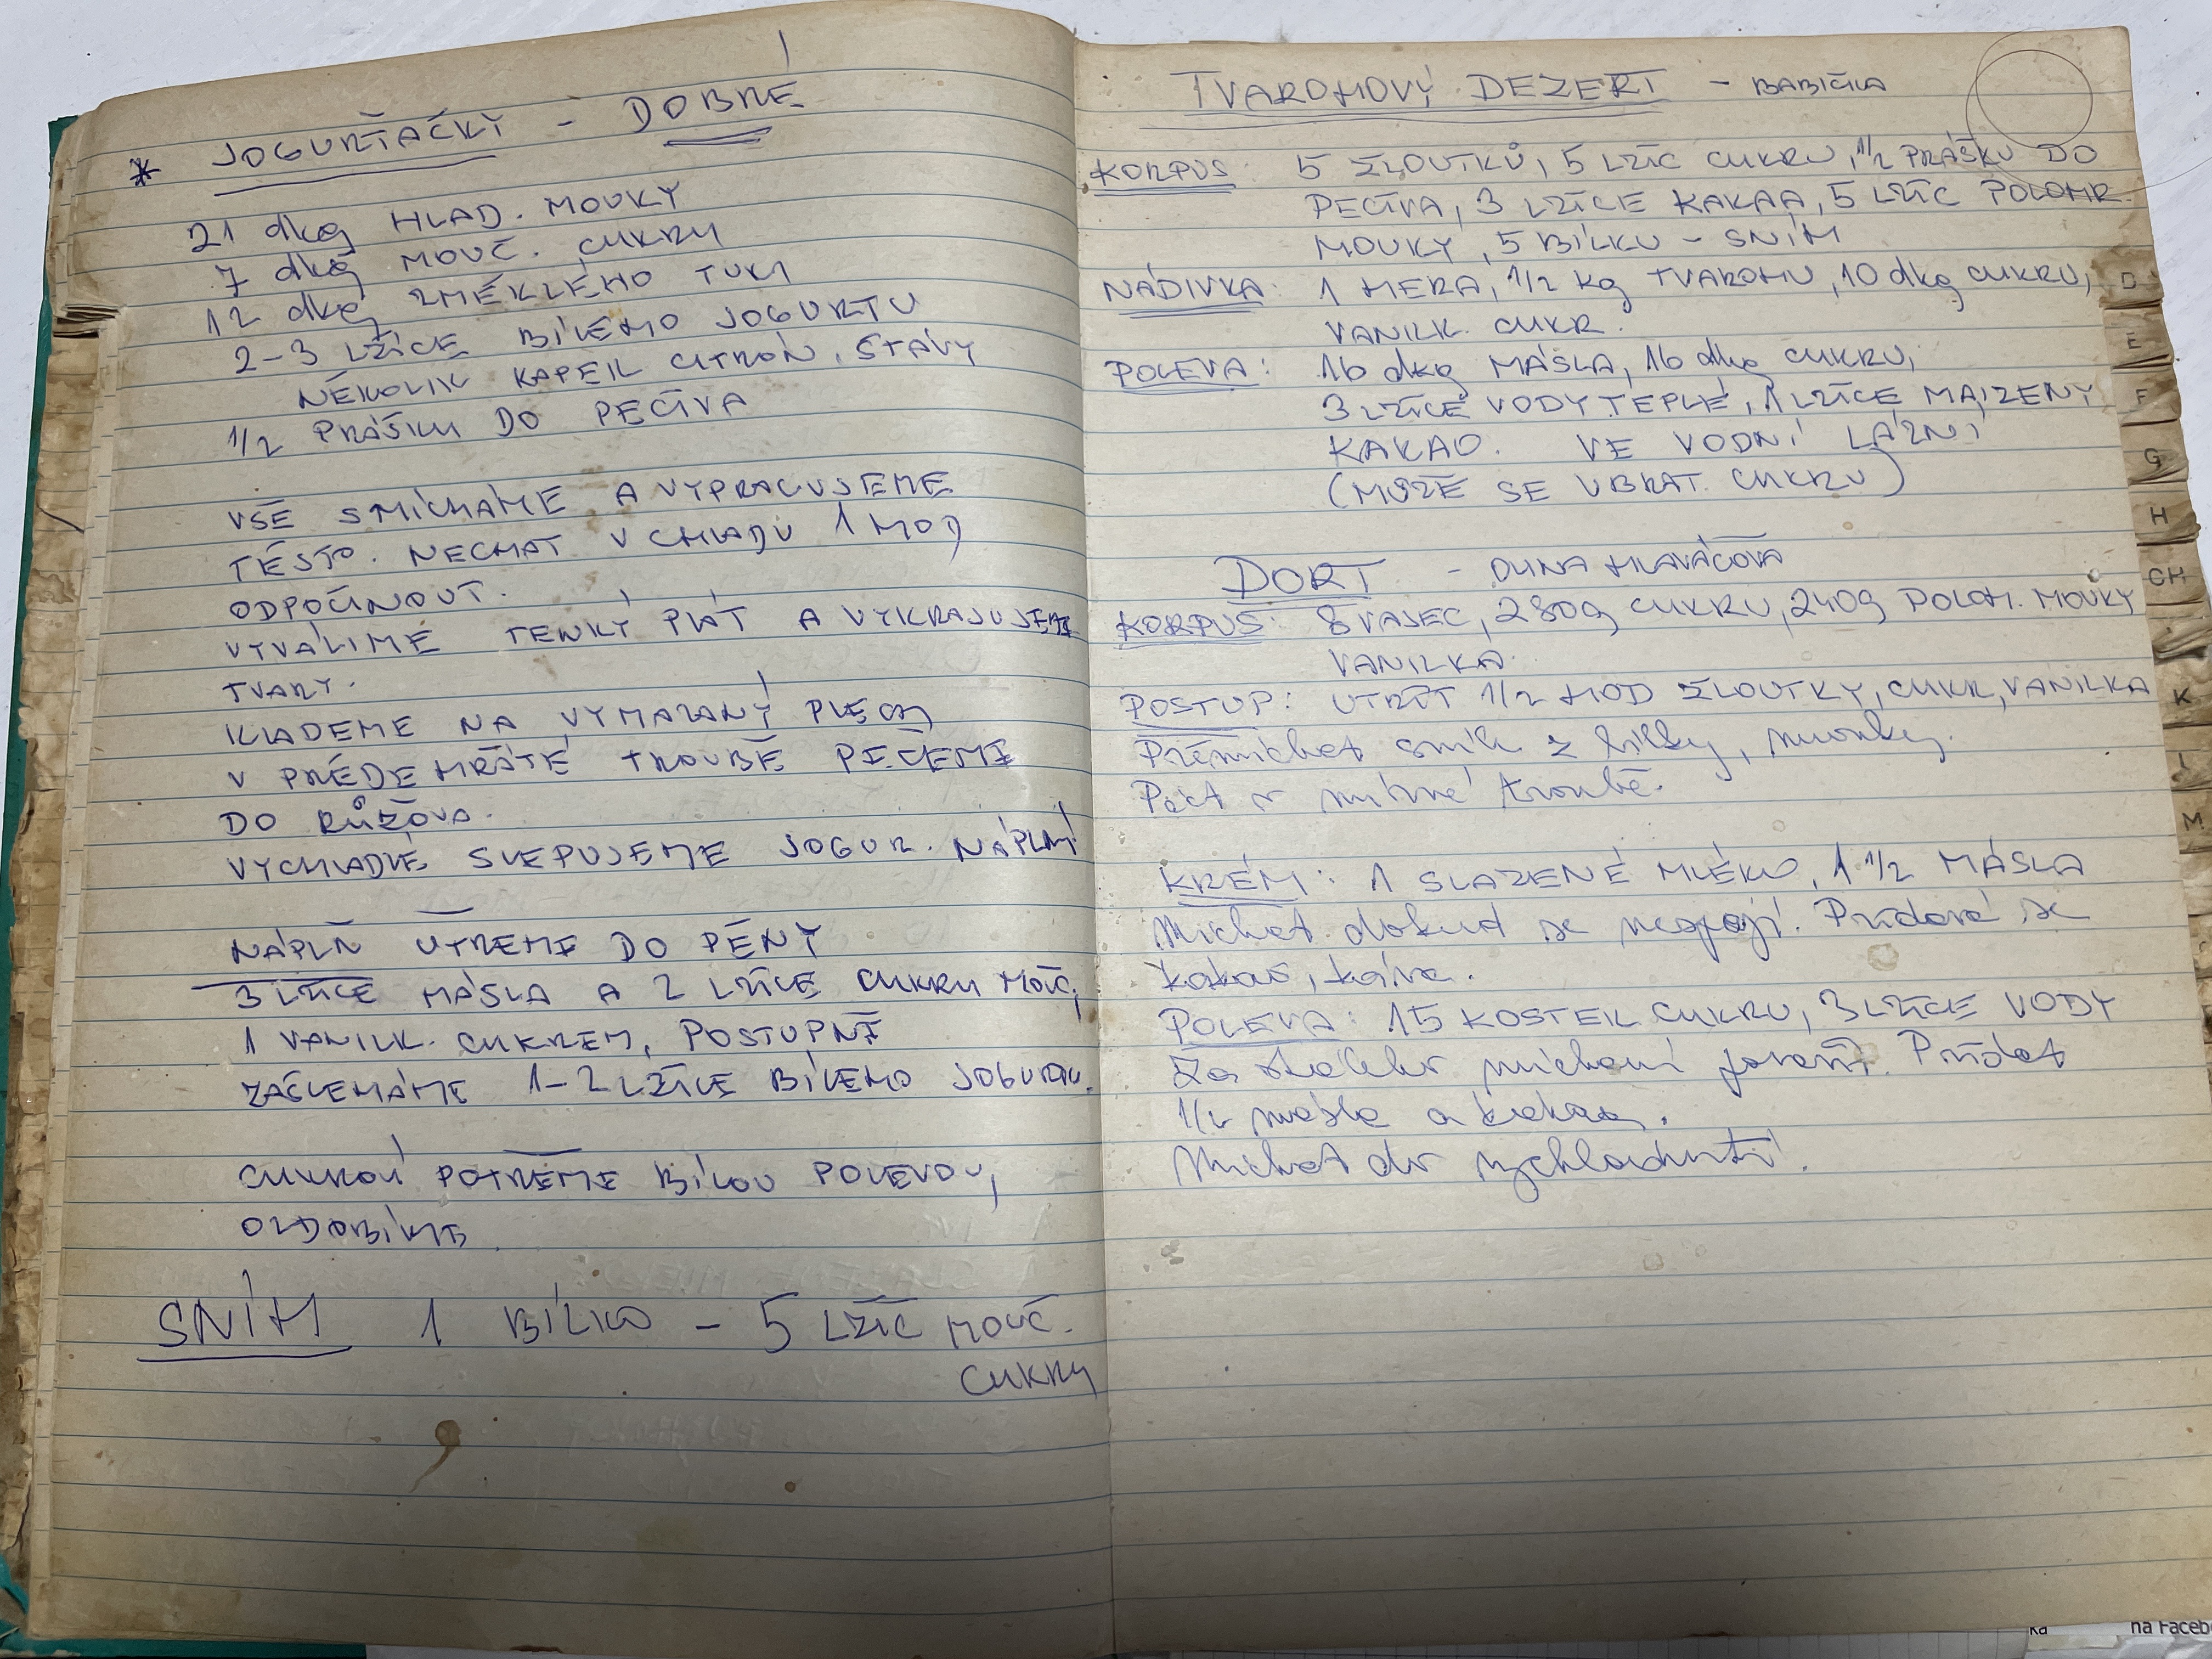 * JOGURŤÁČKY - DOBRÉ
21 dkg HLAD. MOUKY
7 dkg MOUČ. CUKRU
12 dkg ZMĚKLÉHO TUKU
2-3 LŽÍCE BÍLÉHO JOGURTU
NĚKOLIK KAPEK CITRÓN. ŠŤÁVY
1/2 PRÁŠKU DO PEČIVA
VŠE SMÍCHÁME A VYPRACUJEME
TĚSTO. NECHAT V CHLADU 1 HOD
ODPOČINOUT.
VYVÁLÍME TENKÝ PLÁT A VYKRAJUJEME
TVARY.
KLADEME NA VYMAZANÝ PLECH
V PŘEDEHŘÁTÉ TROUBĚ PEČEME
DO RŮŽOVA.
VYCHLADLÉ SLEPUJEME JOGUR. NÁPLNÍ
NÁPLŇ UTŘEME DO PĚNY
3 LŽÍCE MÁSLA A 2 LŽÍCE CUKRU MOUČ,
1 VANILK. CUKREM, POSTUPNĚ
ZAŠLEHÁME 1-2 LŽÍCE BÍLÉHO JOGURTU.
CUKROVÍ POTŘEME BÍLOU POLEVOU,
OZDOBÍME
SNÍH 1 BÍLKO - 5 LŽIC MOUČ.
CUKRU
TVAROHOVÝ DEZERT - BABIČKA
KORPUS: 5 ŽLOUTKŮ, 5 LŽIC CUKRU, 1/2 PRÁŠKU DO
PEČIVA, 3 LŽÍCE KAKAA, 5 LŽIC POLOHR.
MOUKY, 5 BÍLKŮ - SNÍH
NÁDIVKA: 1 HERA, 1/2 kg TVAROHU, 10 dkg CUKRU,
VANILK. CUKR.
POLEVA: 16 dkg MÁSLA, 16 dkg CUKRU,
3 LŽÍCE VODY TEPLÉ, 1 LŽÍCE MAIZENY
KAKAO. VE VODNÍ LÁZNI
(MŮŽE SE UBRAT CUKRU)
DORT - OLINA HLAVÁČOVA
KORPUS: 8 VAJEC, 280g CUKRU, 240g POLOH. MOUKY
VANILKA
POSTUP: UTŘÍT 1/2 HOD ŽLOUTKY, CUKR, VANILKA
Přimíchat sníh z bílků, mouku.
Péct v mírné troubě.
KRÉM: 1 SLAZENÉ MLÉKO, 1 1/2 MÁSLA
Míchat dokud se nespojí. Přidává se
kakao, káva.
POLEVA: 15 KOSTEK CUKRU, 3 LŽÍCE VODY
Za stálého míchání povařit. Přidat
1/4 másla a kakao.
Míchat do vychladnutí.
D
E
F
G
H
CH
K
L
M